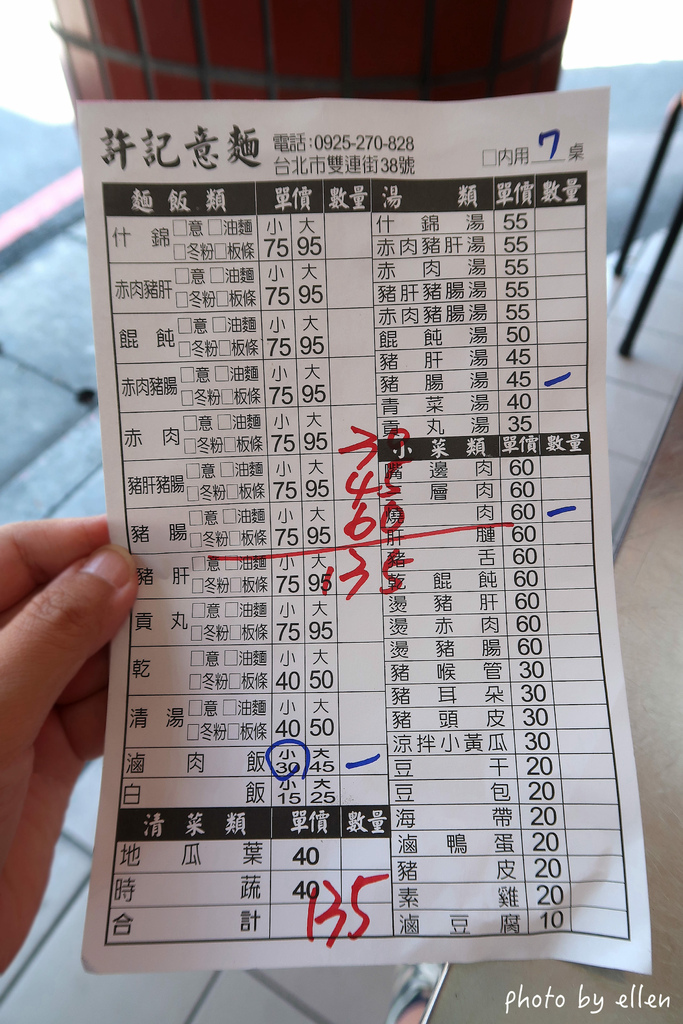 許記意麵
電話:0925-270-828
台北市雙連街38號
□內用 7 桌
麵飯類 單價 數量
什錦 □意 □油麵 □冬粉 □板條 小 75 大 95
赤肉豬肝 □意 □油麵 □冬粉 □板條 小 75 大 95
餛飩 □意 □油麵 □冬粉 □板條 小 75 大 95
赤肉豬腸 □意 □油麵 □冬粉 □板條 小 75 大 95
赤肉 □意 □油麵 □冬粉 □板條 小 75 大 95
豬肝豬腸 □意 □油麵 □冬粉 □板條 小 75 大 95
豬腸 □意 □油麵 □冬粉 □板條 小 75 大 95
豬肝 □意 □油麵 □冬粉 □板條 小 75 大 95
貢丸 □意 □油麵 □冬粉 □板條 小 75 大 95
乾 □意 □油麵 □冬粉 □板條 小 40 大 50
清湯 □意 □油麵 □冬粉 □板條 小 40 大 50
滷肉飯 小 30 大 45 —
白飯 小 15 大 25
清菜類 單價 數量
地瓜葉 40
時蔬 40
合計 135
湯類 單價 數量
什錦湯 55
赤肉豬肝湯 55
赤肉湯 55
豬肝豬腸湯 55
赤肉豬腸湯 55
餛飩湯 50
豬肝湯 45
豬腸湯 45 —
青菜湯 40
貢丸湯 35
小菜類 單價 數量
嘴邊肉 60
層肉 60
燒肉 60 —
肝腱 60
豬舌 60
乾餛飩 60
燙豬肝 60
燙赤肉 60
燙豬腸 60
豬喉管 30
豬耳朵 30
豬頭皮 30
涼拌小黃瓜 30
豆干 20
豆包 20
海帶 20
滷鴨蛋 20
豬皮 20
素雞 20
滷豆腐 10
30
45
60
135
photo by ellen